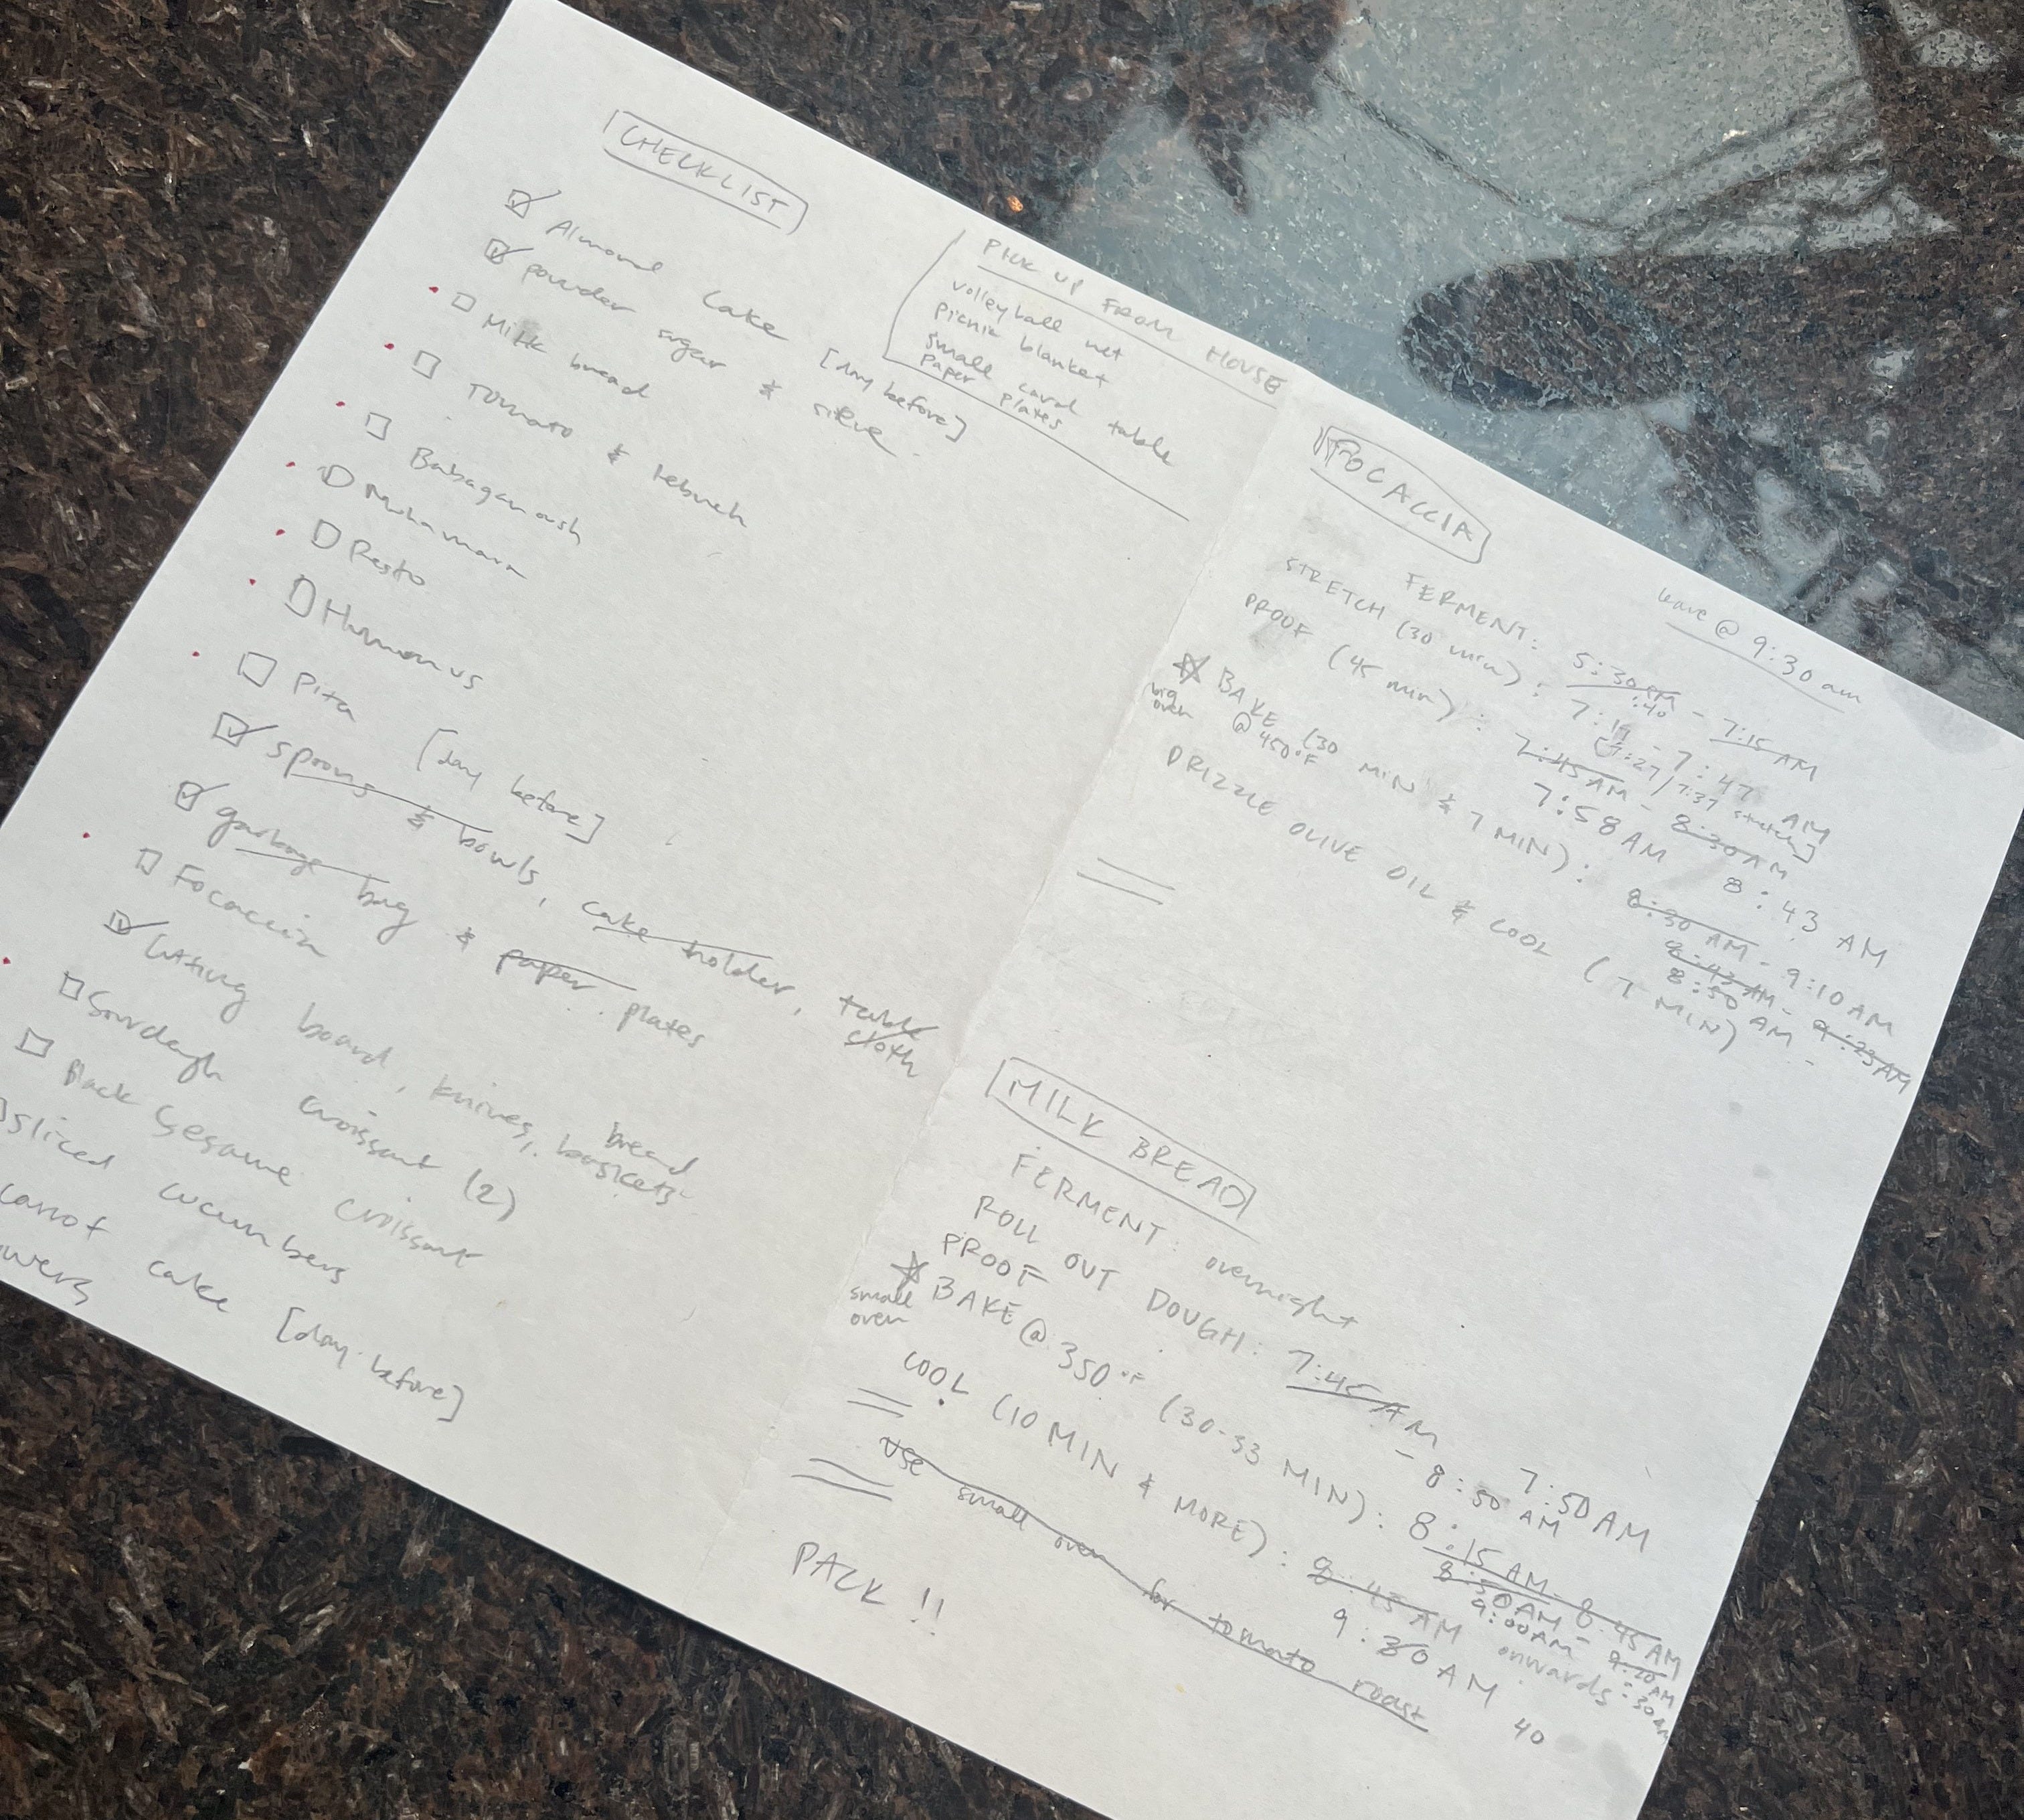 CHECKLIST
Almond Cake [day before]
powder sugar & sieve
Milk bread
Tomato & lebneh
Babaganoush
Muhamara
Pesto
Hummus
Pita [day before]
spoons & bowls, cake holder, table cloth
garbage bag & paper plates
Focaccia
Cutting board, knives, bread baskets
Sourdough croissant (2)
Black Sesame croissant
sliced cucumbers
carrot cake [day before]
owers
PICK UP FROM HOUSE
volleyball net
picnic blanket
small card table
paper plates
leave @ 9:30 am
FOCACCIA
FERMENT: 5:30 AM - 7:15 AM
:40
STRETCH (30 min): 7:17 - 7:47 AM
[7:27/7:37 stretch]
PROOF (45 min): 7:45 AM - 8:30 AM
7:58 AM 8:43 AM
BAKE (30 MIN & 7 MIN): 8:30 AM - 9:10 AM
big oven @ 450°F
8:43 AM - 9:23 AM
8:50 AM -
DRIZZLE OLIVE OIL & COOL (7 MIN)
MILK BREAD
FERMENT: overnight
ROLL OUT DOUGH: 7:45 AM 7:50 AM
PROOF - 8:50 AM
BAKE @ 350°F (30-33 MIN): 8:15 AM - 8:45 AM
small oven
8:50 AM 9:20 AM
9:00 AM - :30 AM
COOL (10 MIN & MORE): 8:45 AM onwards
9:30 AM 40
use small oven for tomato roast
PACK !!